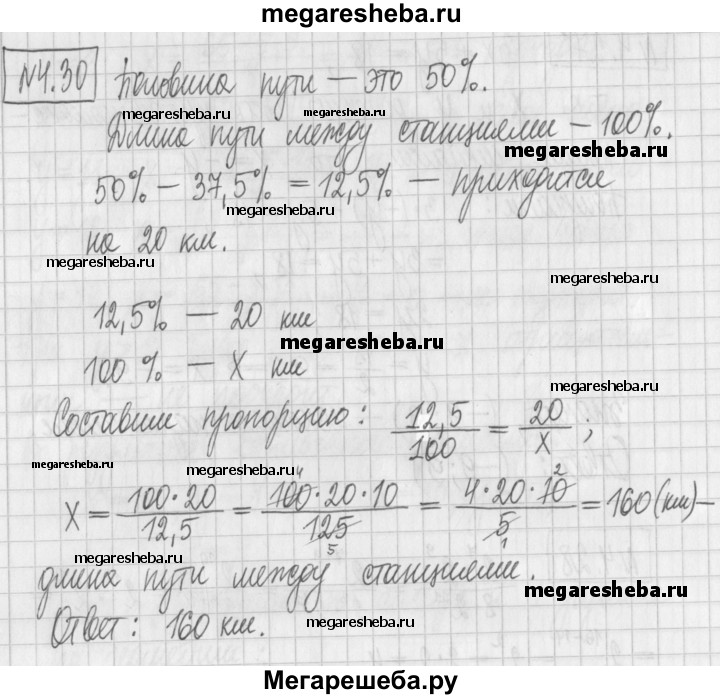 megaresheba.ru
№4.30 Половина пути — это 50%.
megaresheba.ru megaresheba.ru
Длина пути между станциями — 100%.
megaresheba.ru
50% − 37,5% = 12,5% — приходится
megaresheba.ru
на 20 км.
megaresheba.ru megaresheba.ru
12,5% — 20 км
megaresheba.ru
100 % — X км
megaresheba.ru
Составим пропорцию: 12,5/100 = 20/X ;
megaresheba.ru megaresheba.ru megaresheba.ru
X = 100·20/12,5 = 100·20·10/125 = 4·20·10/5 = 160 (км) —
4 5 2 1
megaresheba.ru megaresheba.ru
длина пути между станциями.
megaresheba.ru
Ответ: 160 км.
megaresheba.ru megaresheba.ru
Мегарешеба.ру